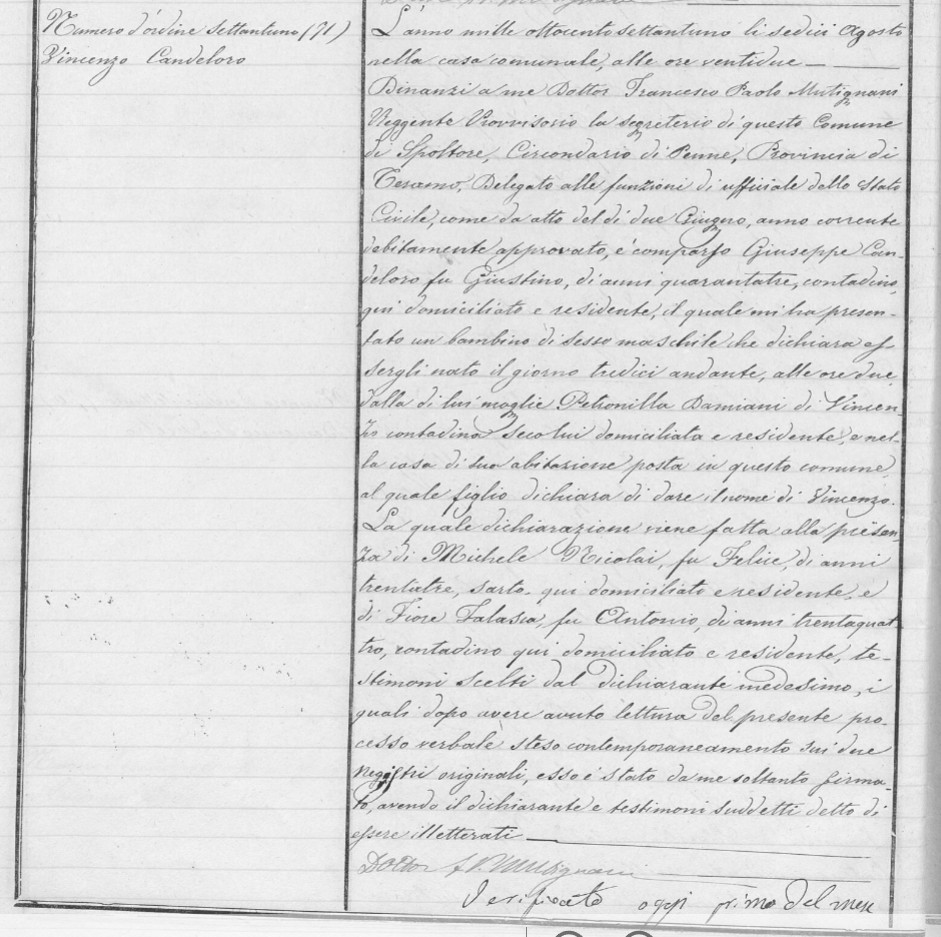 Numero d'ordine settantuno (71)
Vincenzo Candeloro
L'anno mille ottocento settantuno li sedici Agosto
nella casa comunale, alle ore ventidue
Dinanzi a me Dottor Francesco Paolo Mutignani
Reggente Provvisorio la segreterio di questo Comune
di Spoltore, Circondario di Penne, Provincia di
Teramo, Delegato alle funzioni di uffiziale dello Stato
Civile, come da atto del dì due Giugno, anno corrente
debitamente approvato, è comparso Giuseppe Can-
deloro fu Giustino, di anni quarantatre, contadino,
qui domiciliato e residente, il quale mi ha presen-
tato un bambino di sesso maschile che dichiara es-
sergli nato il giorno tredici andante, alle ore due,
dalla di lui moglie Petronilla Damiani di Vincen-
zo contadina seco lui domiciliata e residente, e nel-
la casa di sua abitazione posta in questo comune,
al quale figlio dichiara di dare il nome di Vincenzo.
La quale dichiarazione viene fatta alla presen-
za di Michele Nicolai, fu Felice, di anni
trentatre, sarto, qui domiciliato e residente, e
di Fiore Falasca, fu Antonio, di anni trentaquat
tro, contadino qui domiciliato e residente, te-
stimoni scelti dal dichiarante medesimo, i
quali dopo avere avuto lettura del presente pro-
cesso verbale steso contemporaneamento sui due
registri originali, esso è stato da me soltanto firma-
to, avendo il dichiarante e testimoni suddetti detto di
essere illetterati
Dottor F. P. Mutignani
Verificato oggi primo del mese